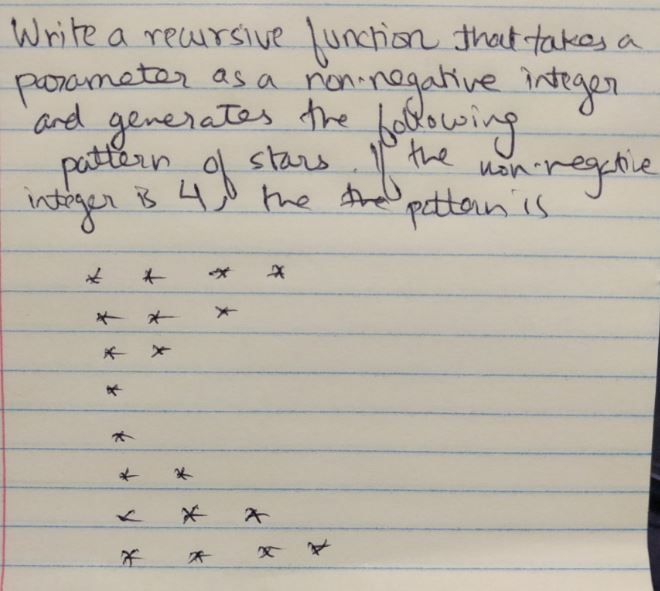 Write a recursive function that takes a
parameter as a non-negative integer
and generates the following
pattern of stars. If the non-negative
integer is 4, the the pattern is
* * * *
* * *
* *
*
*
* *
* * *
* * * *